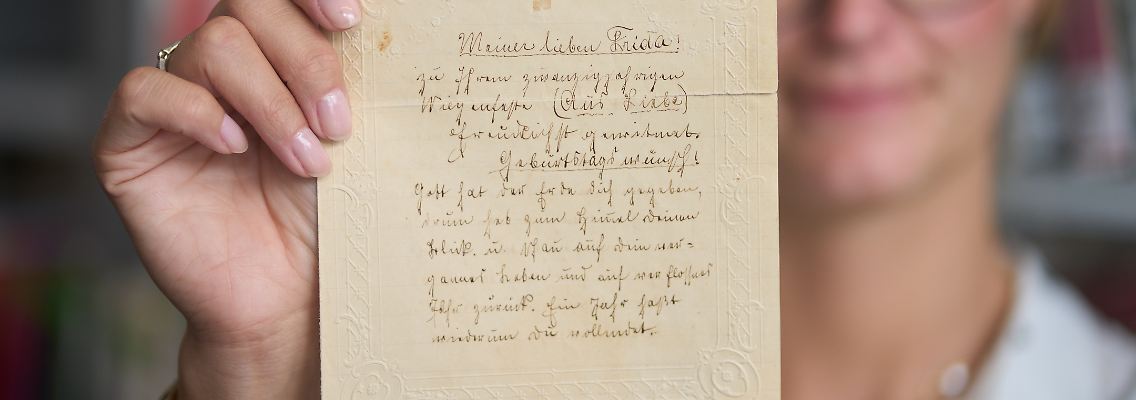 Meiner lieben Frida!
zu Ihrem zwanzigjahrigen
Wiegenfeste (Aus Liebe)
freundlichst gewitmet.
Geburtstagswünsch!
Gott hat der Erde dich gegeben,
drum heb zum Himel deinen
Blick. u. schau auf dein ver=
gannes Leben und auf verfloßnes
Jahr zurück. Ein Jahr hast
wiederum du vollendet.